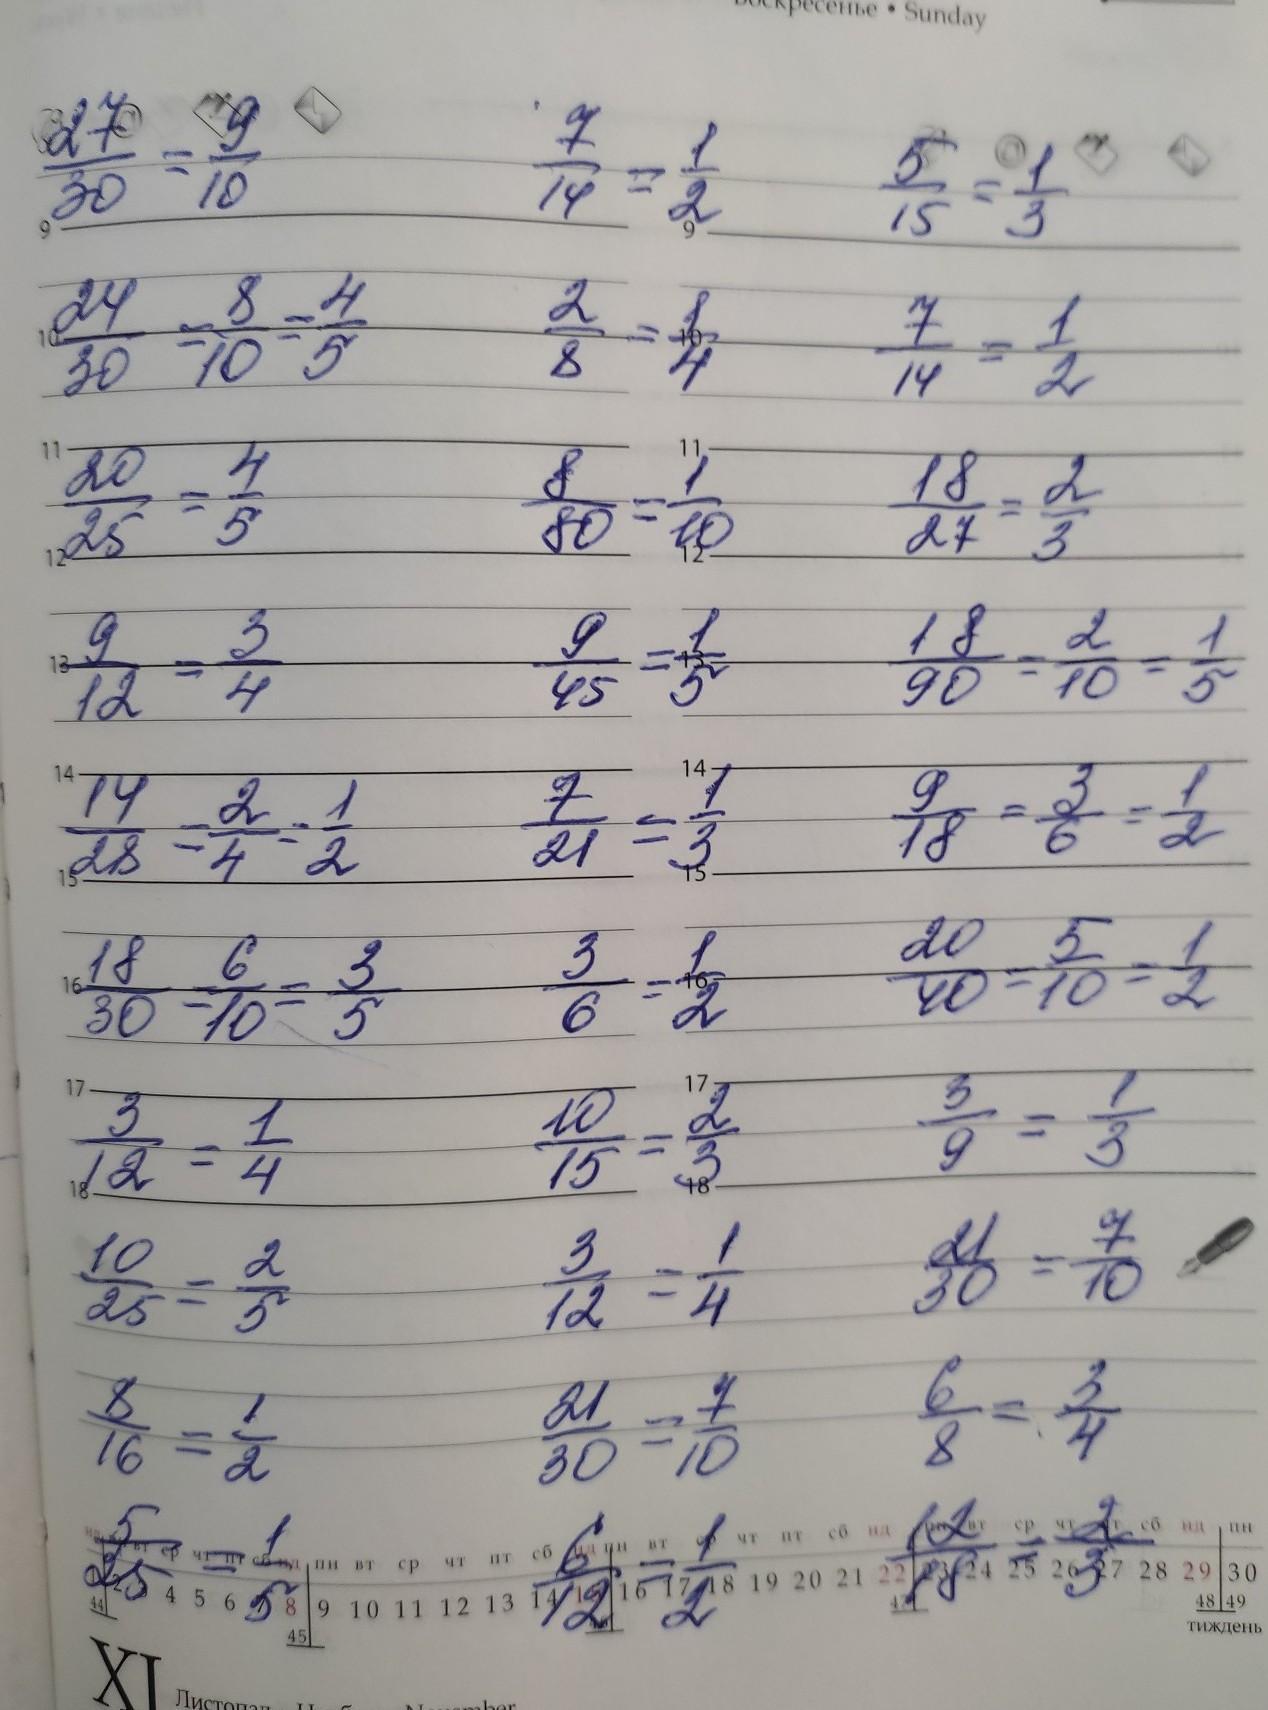 Воскресенье • Sunday
27/30 = 9/10 7/14 = 1/2 5/15 = 1/3
9 9
24/30 = 8/10 = 4/5 2/8 = 1/4 7/14 = 1/2
10 10
11 11
20/25 = 4/5 8/80 = 1/10 18/27 = 2/3
12 12
9/12 = 3/4 9/45 = 1/5 18/90 = 2/10 = 1/5
13 13
14 14
14/28 = 2/4 = 1/2 7/21 = 1/3 9/18 = 3/6 = 1/2
15 15
18/30 = 6/10 = 3/5 3/6 = 1/2 20/40 = 5/10 = 1/2
16 16
17 17
3/12 = 1/4 10/15 = 2/3 3/9 = 1/3
18 18
10/25 = 2/5 3/12 = 1/4 21/30 = 7/10
8/16 = 1/2 21/30 = 7/10 6/8 = 3/4
5/25 = 1/5 6/12 = 1/2 12/18 = 2/3
нд вт ср чт пт сб нд пн вт ср чт пт сб нд пн вт ср чт пт сб нд пн вт ср чт пт сб нд пн
2 4 5 6 7 8 9 10 11 12 13 14 15 16 17 18 19 20 21 22 23 24 25 26 27 28 29 30
44 45 47 48 49
тиждень
XI Листопад November